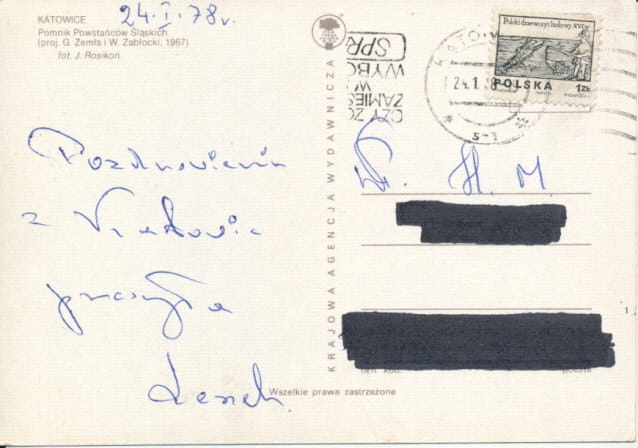 KATOWICE
Pomnik Powstańców Śląskich
(proj. G. Zemła i W. Zabłocki, 1967)
fot. J. Rosikoń
24.I.78r.
Pozdrowienia
z Katowic
przesyła
KRAJOWA AGENCJA WYDAWNICZA
Wszelkie prawa zastrzeżone
CZY
ZAMIES
W
WYBO
SPR
KATOW
24.1. 8
S-1
Polski drzeworyt ludowy XVI w.
POLSKA 1 ZŁ
H. M.